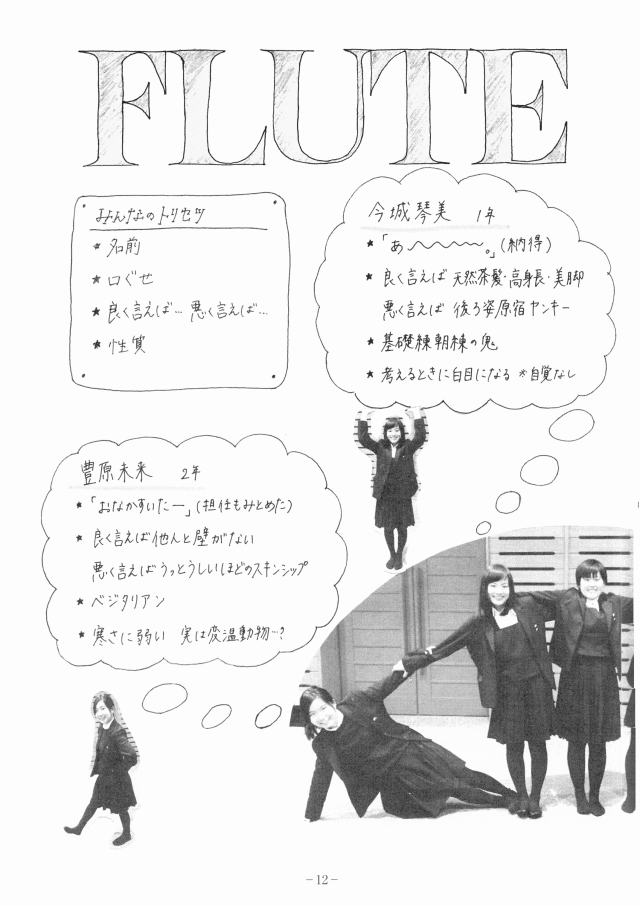 FLUTE
みんなのトリセツ
★ 名前
★ 口ぐせ
★ 良く言えば… 悪く言えば…
★ 性質
今城琴美 1年
★「あ〜〜〜〜。」(納得)
★ 良く言えば 天然茶髪・高身長・美脚
悪く言えば 後ろ姿原宿ヤンキー
★ 基礎練朝練の鬼
★ 考えるときに白目になる ※自覚なし
豊原未来 2年
★「おなかすいたー」(担任もみとめた)
★ 良く言えば他人と壁がない
悪く言えばうっとうしいほどのスキンシップ
★ ベジタリアン
★ 寒さに弱い 実は変温動物…?
－12－